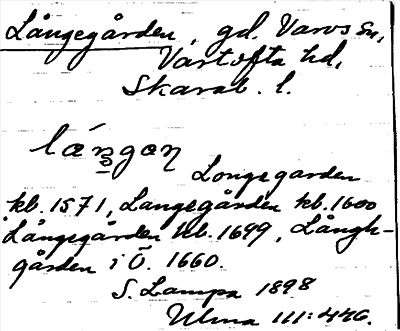 Långegården, gd. Varvs sn,
Vartofta hd,
Skarab. l.
láŋgαŋ
Longegarden
kb. 1571, Langegården kb. 1600
Långegården kb. 1699, Långh-
gården i Ö. 1660.
S. Lampa 1898
Ulma 111:446.